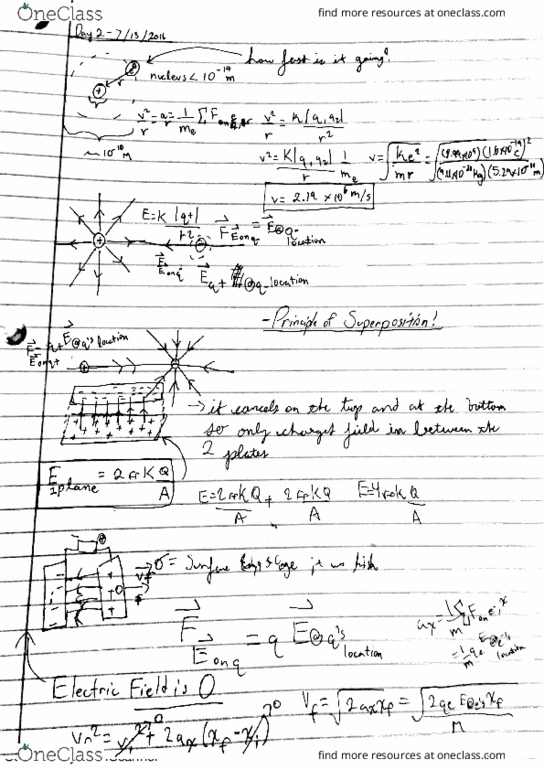 OneClass
find more resources at oneclass.com
Day 2 - 7/13/2016
how fast is it going?
nucleus < 10⁻¹⁴ m
r
v²/r = a = 1/mₑ Σ F
v²/r = K|q₁q₂|/r²
~10⁻¹⁰ m
v² = K|q₁q₂|/r 1/mₑ
v = √(Ke²/mr) = √((8.99×10⁹)(1.6×10⁻¹⁹C)²/(9.11×10⁻³¹kg)(5.29×10⁻¹¹m))
v = 2.19 × 10⁶ m/s
E = K |q+|/r²
F E on q = E@q- location
E on q
E q+ @q- location
- Principle of Superposition!
E@q's location
E on q+
→ it cancels on the top and at the bottom
so only charges field in between the
2 plates
E 1plane = 2πKQ/A
E = 2πKQ/A + 2πKQ/A
E = 4πKQ/A
σ = Surface
F E on q = q E@q's location
aₓ = 1/m Σ F on e⁻,x
= 1/m qe E@e's location
Electric Field is 0
Vf² = Vi² + 2aₓ(xf - xi)
0
0
Vf = √(2aₓxf) = √(2qe E@e's xf/M)
OneClass
find more resources at oneclass.com